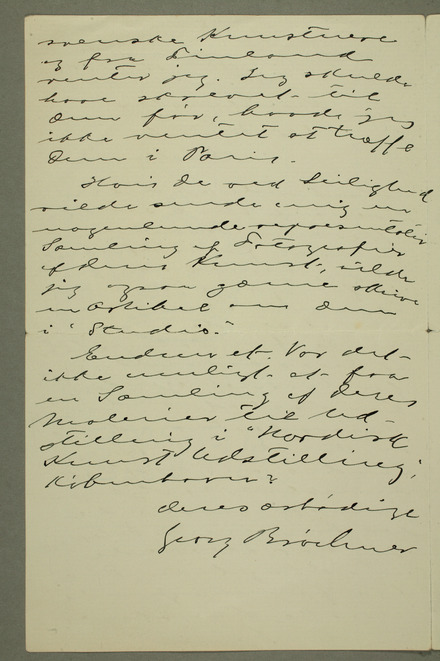 svenske Kunstnere
og fra Finland
venter jeg. Jeg skulde
have skrevet til
Dem før, havde jeg
ikke ventet at træffe
Dem i Paris.
Hvis De ved Leilighed
vilde sende mig en
nogenlunde repræsentativ
Samling af Fotografier
af deres Kunst, vilde
jeg ogsaa gærne skrive
en Artikel om Dem
i "Studio".
Endnu et. Var det
ikke muligt at faa
en Samling af deres
Malerier til Ud-
stilling i "Nordisk
Kunst Udstilling",
København?
deres ærbødige
Georg Brøchner